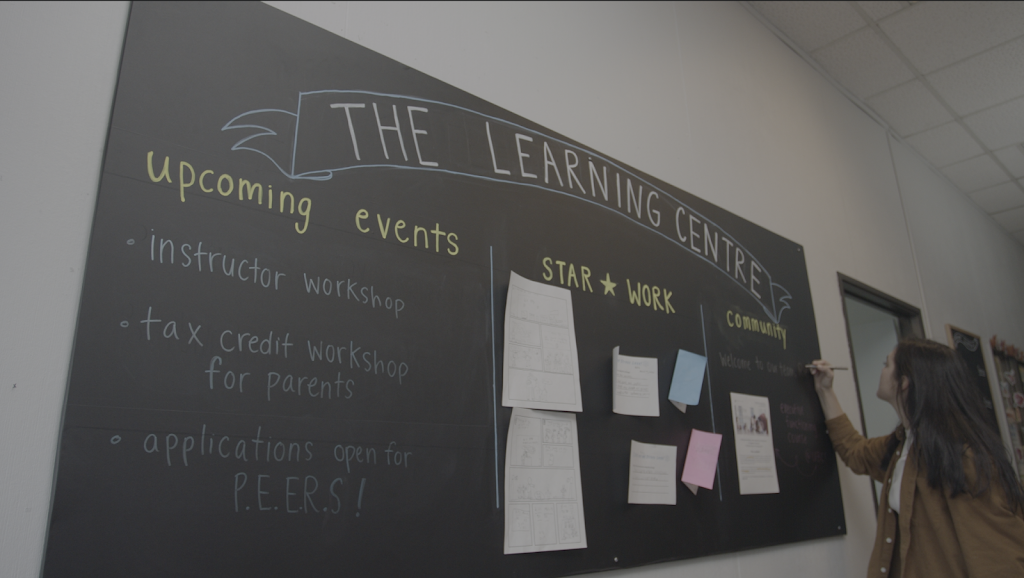 THE LEARNING CENTRE
upcoming events
instructor workshop
tax credit workshop
for parents
applications open for
P.E.E.R.S!
STAR ★ WORK
community
Welcome to our